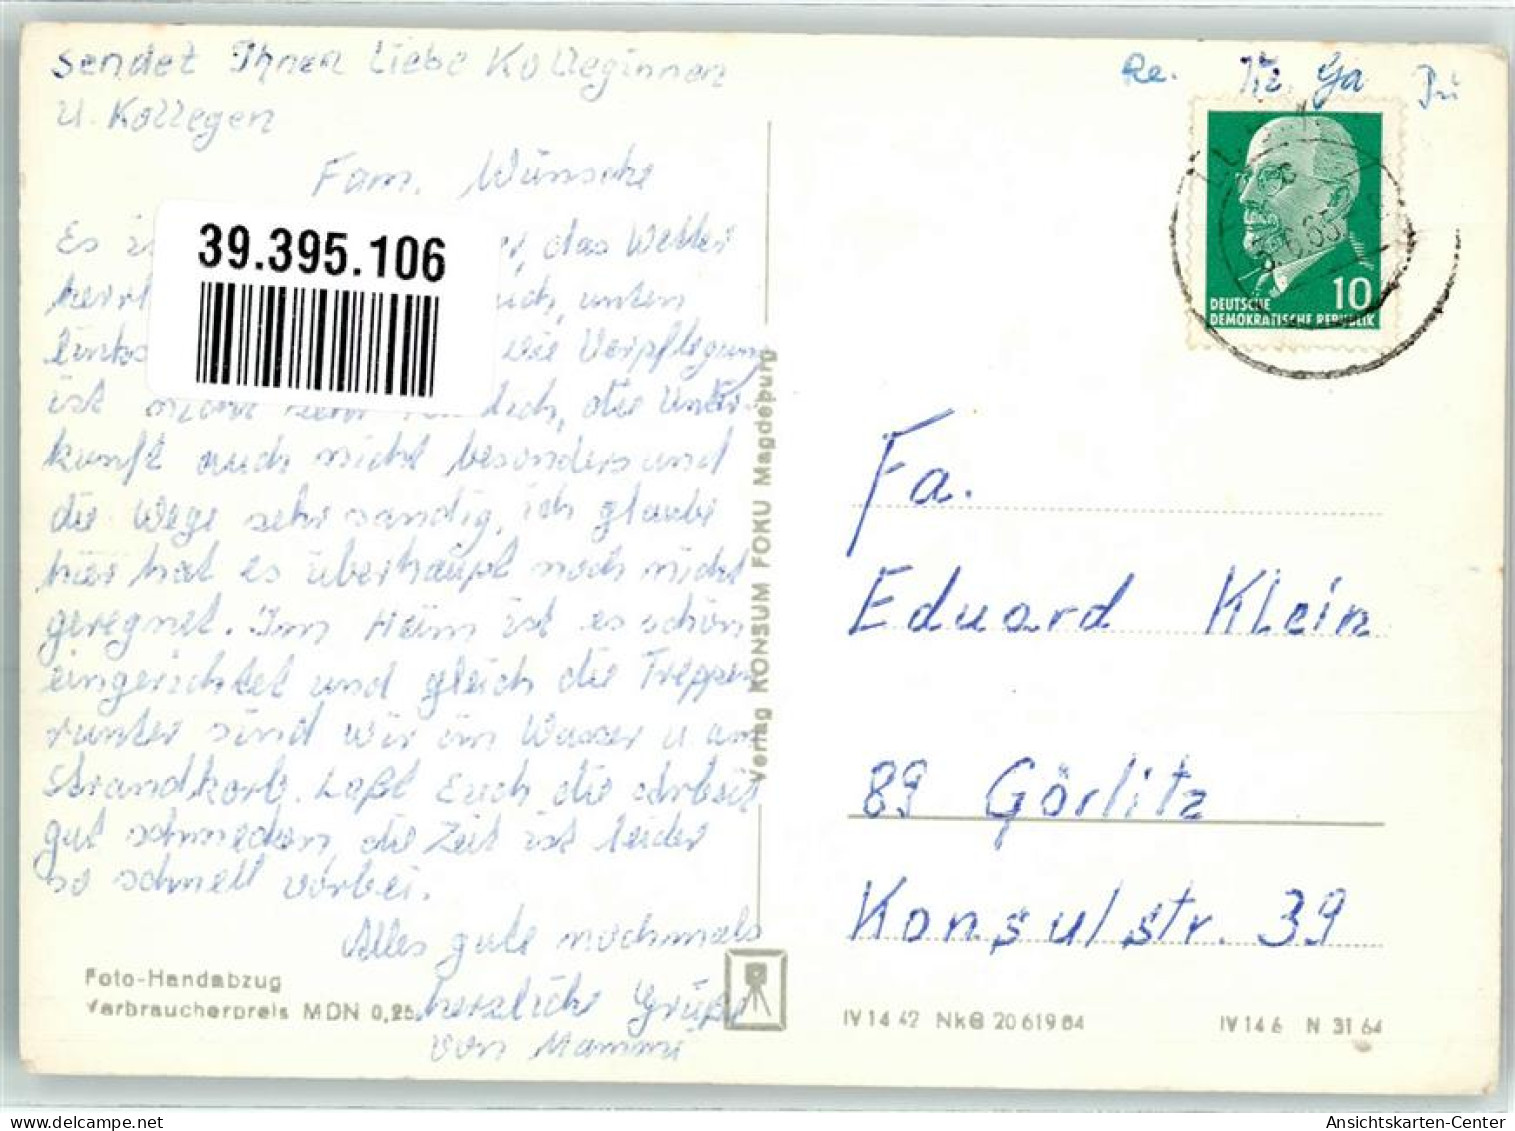 sendet Ihnen liebe Kolleginnen
u. Kollegen
Fam. Wünsche
Es das Wetter
unten
links die Verpflegung
ist nicht sehr, die Unter-
kunft auch nicht besonders und
die Wege sehr sandig, ich glaube
hier hat es überhaupt noch nicht
geregnet. Im Heim ist es schön
eingerichtet und gleich die Treppen
runter sind wir im Wasser u. am
Strandkorb. Laßt Euch die Arbeit
gut schmecken, die Zeit ist leider
so schnell vorbei.
Alles gute nochmals
herzliche Grüße
von Mammi
Foto-Handabzug
Verbraucherpreis MDN 0,25
39.395.106
Verlag KONSUM FOKU Magdeburg
Re. Ga
DEUTSCHE
DEMOKRATISCHE REPUBLIK
10
Fa.
Eduard Klein
89 Görlitz
Konsulstr. 39
IV 14 42 NkG 20 619 64
IV 14 6 N 31 64
www.delcampe.net
Ansichtskarten-Center